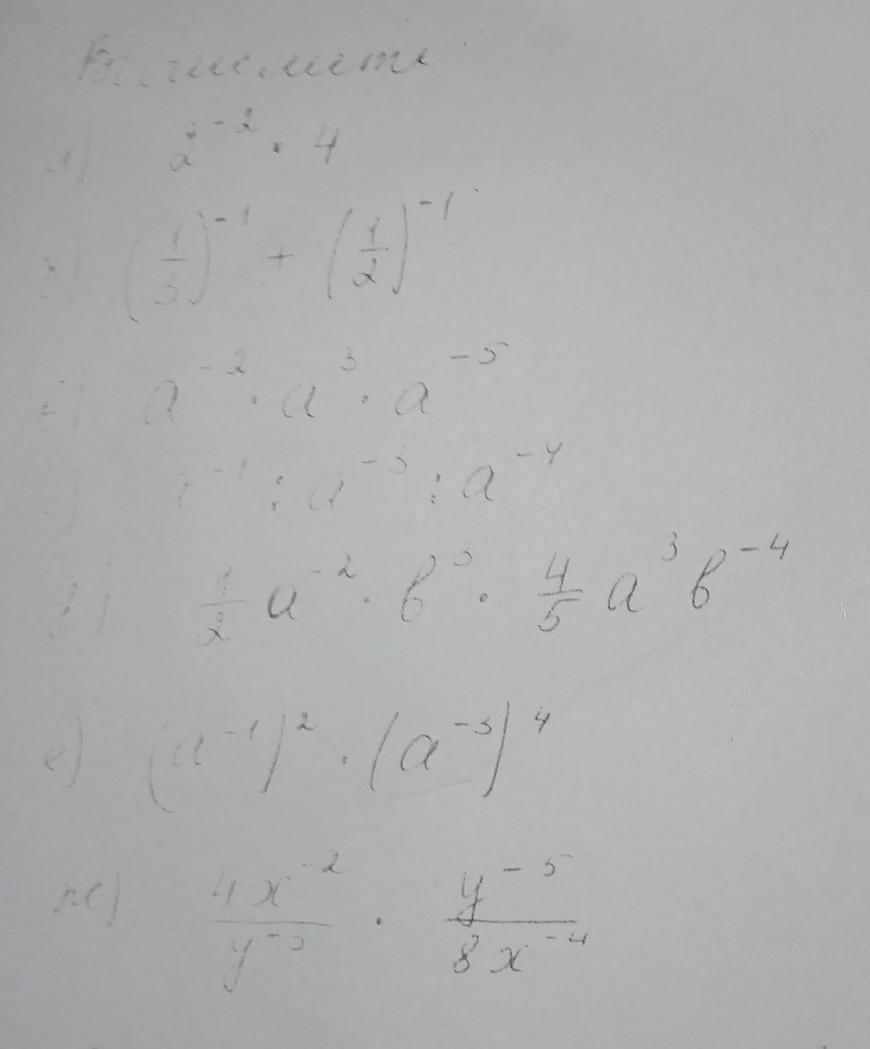 Вычислить
а) 2⁻² · 4
б) (1/3)⁻¹ + (1/2)⁻¹
a⁻² · a³ · a⁻⁵
a⁻¹ : a⁻³ : a⁻⁴
д) 1/2 a⁻² · b³ · 4/5 a³ b⁻⁴
е) (a⁻¹)² · (a⁻³)⁴
ж) 4x⁻²/y⁻³ · y⁻⁵/8x⁻⁴